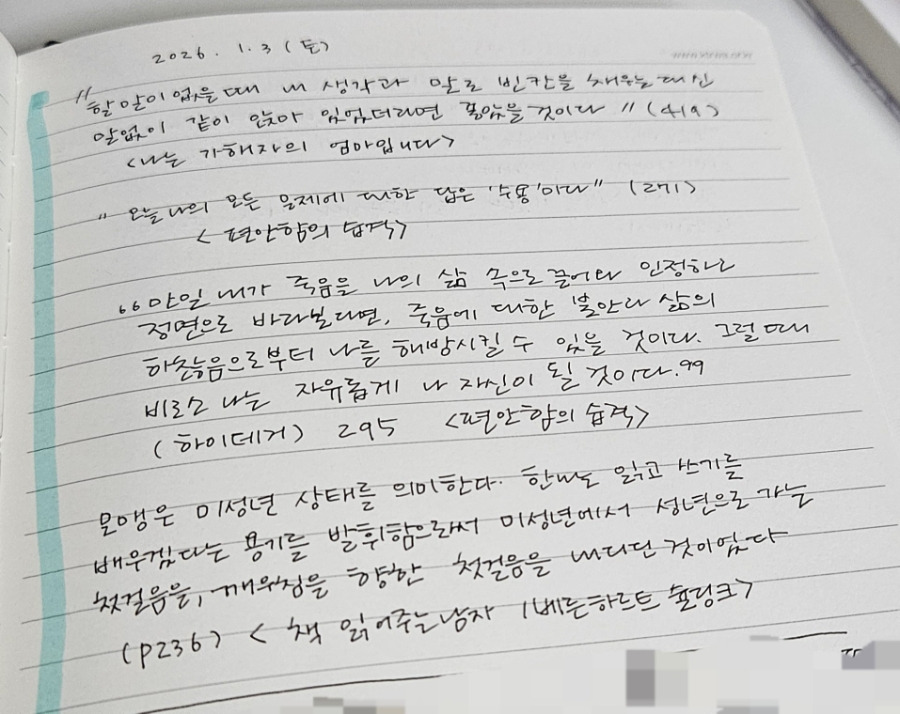 2026. 1. 3 (토)
"할말이 없을 때 내 생각과 말로 빈칸을 채우는 대신
말없이 같이 앉아 있었더라면 좋았을 것이다" (419)
<나는 가해자의 엄마입니다>
"오늘 나의 모든 문제에 대한 답은 '수용'이다" (271)
<편안함의 습격>
"만일 내가 죽음을 나의 삶 속으로 끌어와 인정하고
정면으로 바라본다면, 죽음에 대한 불안과 삶의
하찮음으로부터 나를 해방시킬 수 있을 것이다. 그럴 때
비로소 나는 자유롭게 나 자신이 될 것이다."
(하이데거) 295 <편안함의 습격>
문맹은 미성년 상태를 의미한다. 한나는 읽고 쓰기를
배우겠다는 용기를 발휘함으로써 미성년에서 성년으로 가는
첫걸음을, 깨우침을 향한 첫걸음을 내디딘 것이었다
(p236) <책 읽어주는 남자 / 베른하르트 슐링크>